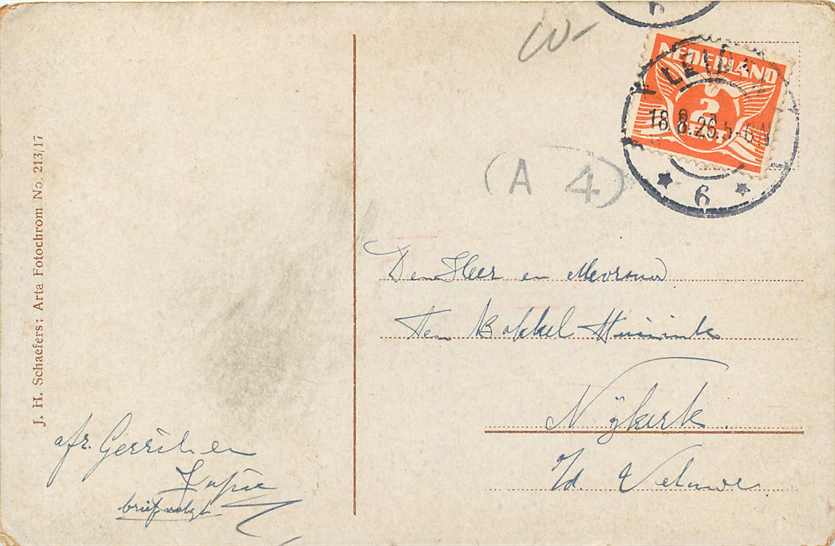 w-
6
NEDERLAND
2
LEID
18.8.26.5-6
6
(A 4)
J. H. Schaefers: Arta Fotochrom No. 213/17
Den Heer en Mevrouw
Ten Bokkel Huinink
Nijkerk.
o/d Veluwe
afz. Gerrit en
brief volgt